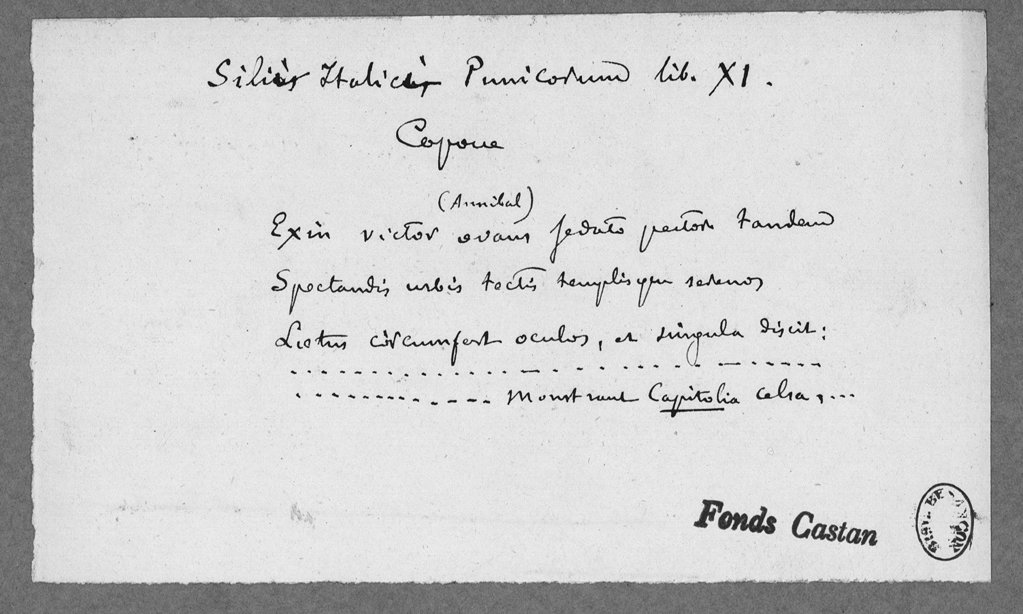 Silius Italicus Punicorum lib. XI.
Capoue
(Annibal)
Exin victor ovans sedato pectore tandem
Spectandis urbis tectis templisque serenos
Lætus circumfert oculos, et singula discit:
. . . . . . . . . . . . . . . . . . . . . . . . . . . . . .
. . . . . . . . . . . . . . Monstrant Capitolia celsa, ...
Fonds Castan
BIBL. BESANCON